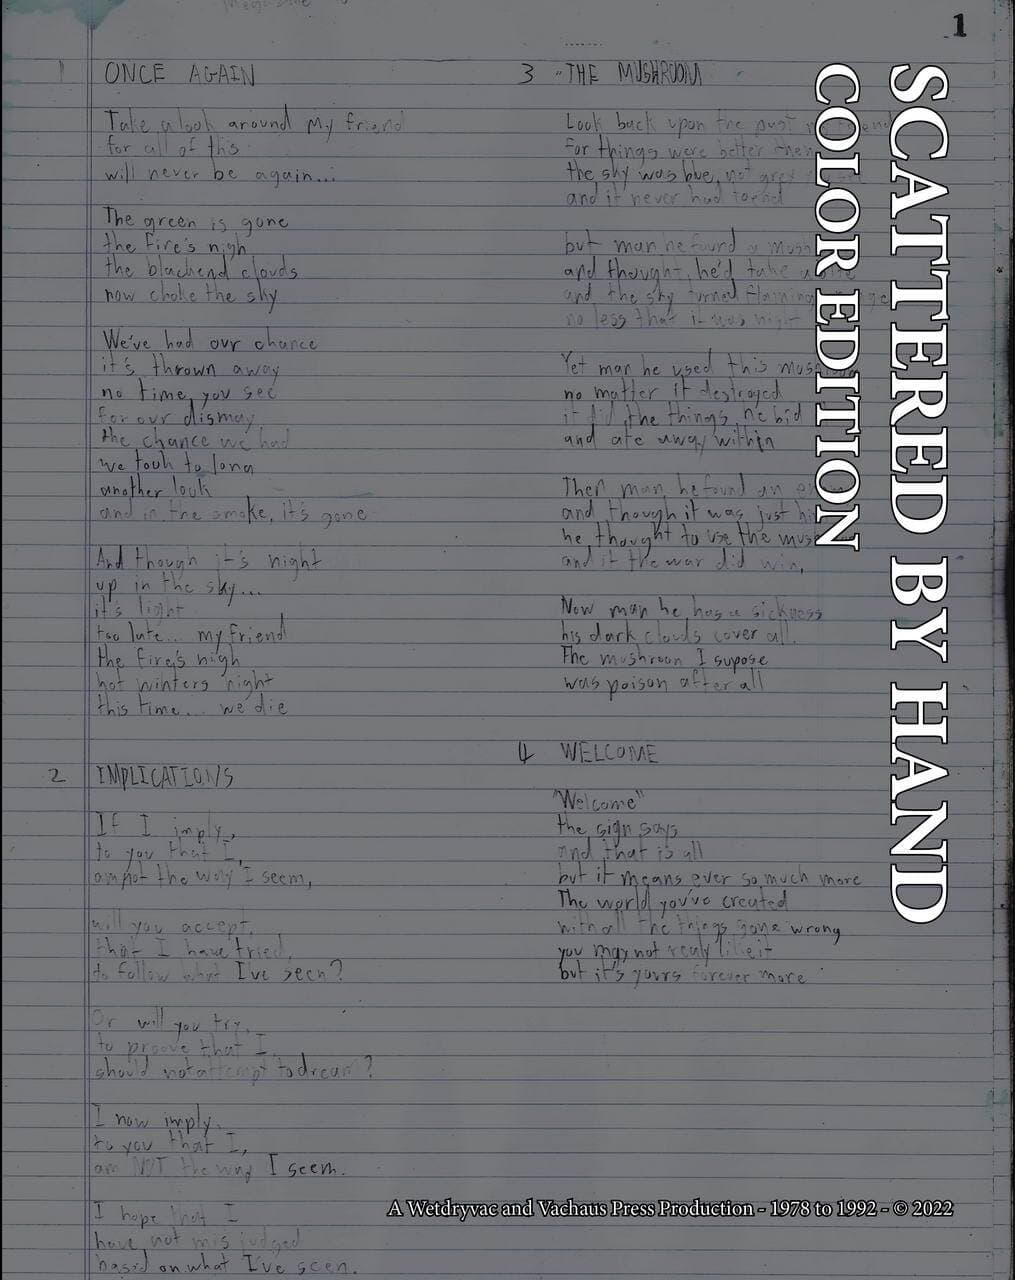 1
SCATTERED BY HAND
COLOR EDITION
1 ONCE AGAIN
Take a look around my friend
for all of this
will never be again...
The green is gone
the fire's nigh
the blackend clouds
now choke the sky
We've had our chance
it's thrown away
no time, you see
for our dismay
the chance we had
we took to long
another look
and in the smoke, it's gone
And though it's night
up in the sky...
it's light
too late... my friend
the fire's nigh
hot winters night
this time... we die
2 IMPLICATIONS
If I imply,
to you that I,
am not the way I seem,
will you accept,
that I have tried,
to follow what I've seen?
Or will you try,
to proove that I
should not attempt to dream?
I now imply,
to you that I,
am NOT the way I seem.
I hope that I
have not mis judged
based on what I've seen.
3 THE MUSHROOM
Look back upon the past my friend
for things were better then
the sky was blue, not grey
and it never had to end
but man he found a
and thought, he'd take a
and the sky turned flaming
no less that it was night
Yet man he used this
no matter it destroyed
it did the things he bid
and ate away within
Then man he found an
and though it was just
he thought to use the
and it the war did win,
Now man he has a sickness
his dark clouds cover all.
The mushroon I supose
was poison after all
4 WELCOME
"Welcome"
the sign says
and that is all
but it means ever so much more
The world you've created
with all the things gone wrong
you may not realy like it
but it's yours forever more
A Wetdryvac and Vachaus Press Production - 1978 to 1992 - © 2022